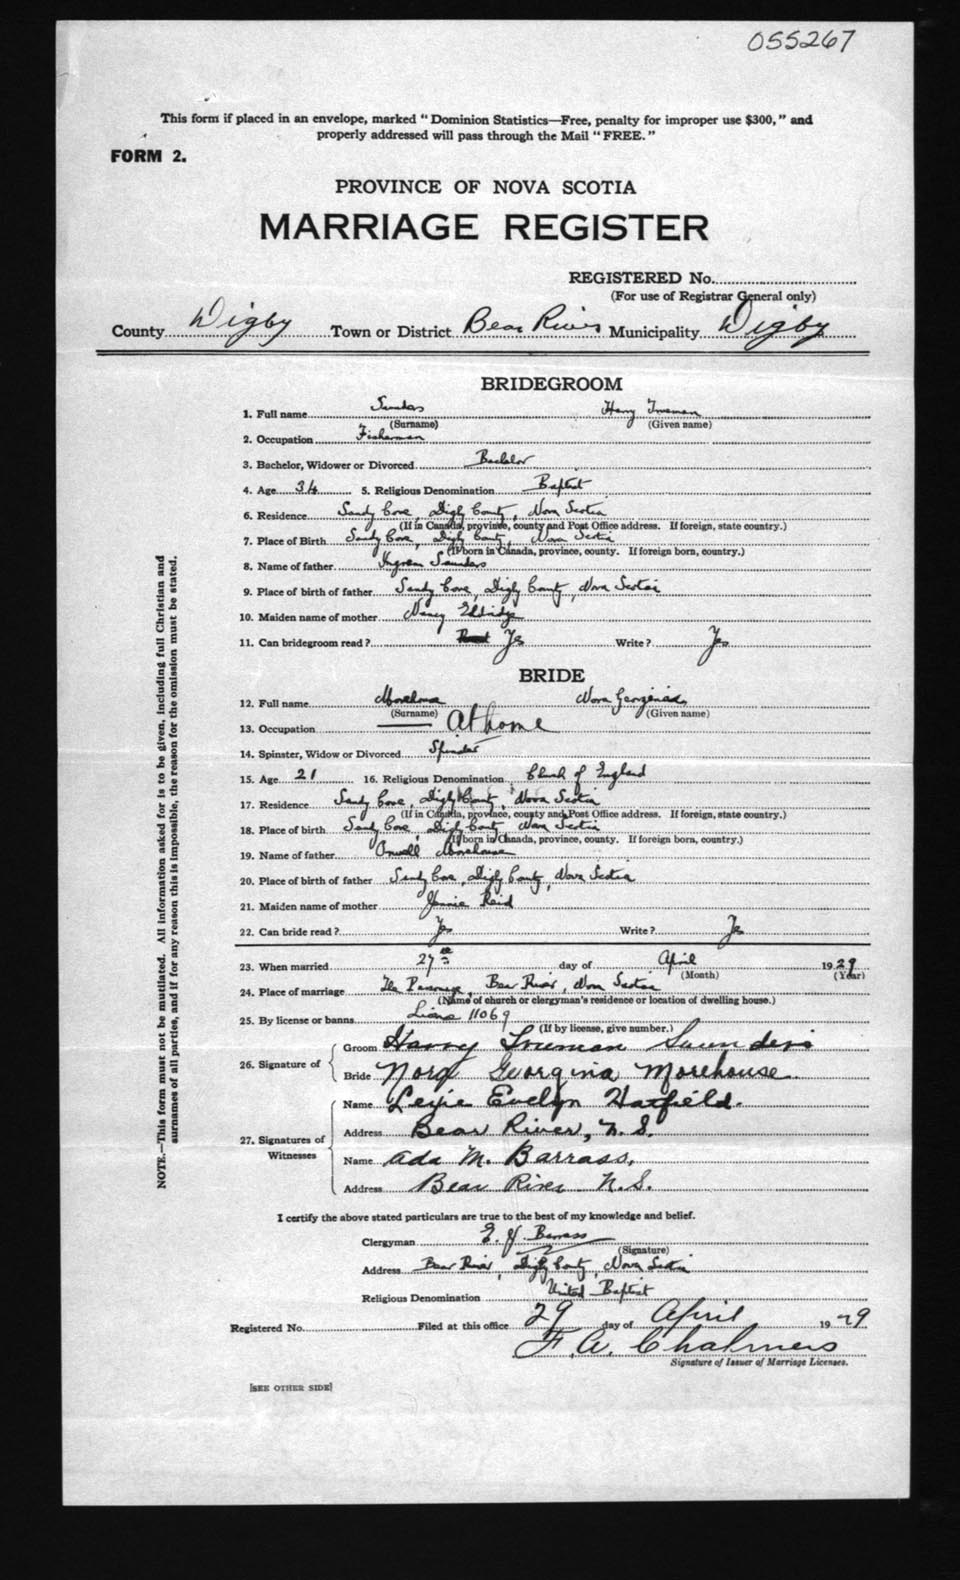 055267
This form if placed in an envelope, marked "Dominion Statistics—Free, penalty for improper use $300," and
properly addressed will pass through the Mail "FREE."
FORM 2.
PROVINCE OF NOVA SCOTIA
MARRIAGE REGISTER
REGISTERED No.
(For use of Registrar General only)
County Digby Town or District Bear River Municipality Digby
BRIDEGROOM
1. Full name Saunders Harry Trueman
(Surname) (Given name)
2. Occupation Fisherman
3. Bachelor, Widower or Divorced Bachelor
4. Age 34 5. Religious Denomination Baptist
6. Residence Sandy Cove, Digby County, Nova Scotia
(If in Canada, province, county and Post Office address. If foreign, state country.)
7. Place of Birth Sandy Cove, Digby County, Nova Scotia
(If born in Canada, province, county. If foreign born, country.)
8. Name of father Ingram Saunders
9. Place of birth of father Sandy Cove, Digby County, Nova Scotia
10. Maiden name of mother Nancy Eldridge
11. Can bridegroom read? Yes Write? Yes
BRIDE
12. Full name Morehouse Nora Georgenia
(Surname) (Given name)
13. Occupation At home
14. Spinster, Widow or Divorced Spinster
15. Age 21 16. Religious Denomination Church of England
17. Residence Sandy Cove, Digby County, Nova Scotia
(If in Canada, province, county and Post Office address. If foreign, state country.)
18. Place of birth Sandy Cove, Digby County, Nova Scotia
(If born in Canada, province, county. If foreign born, country.)
19. Name of father Orwell Morehouse
20. Place of birth of father Sandy Cove, Digby County, Nova Scotia
21. Maiden name of mother Jennie Reid
22. Can bride read? Yes Write? Yes
23. When married 27th day of April 1929
(Month) (Year)
24. Place of marriage The Parsonage, Bear River, Nova Scotia
(Name of church or clergyman's residence or location of dwelling house.)
25. By license or banns License 11069
(If by license, give number.)
26. Signature of
Groom Harry Trueman Saunders
Bride Nora Georgina Morehouse
27. Signatures of Witnesses
Name Lexie Evelyn Hatfield.
Address Bear River, N.S.
Name Ada M. Barrass,
Address Bear River N.S.
I certify the above stated particulars are true to the best of my knowledge and belief.
Clergyman Barrass
(Signature)
Address Bear River, Digby County, Nova Scotia
Religious Denomination United Baptist
Registered No. Filed at this office 29 day of April 1929
F. A. Chalmers
Signature of Issuer of Marriage Licenses.
[SEE OTHER SIDE]
NOTE.—This form must not be mutilated. All information asked for is to be given, including full Christian and
surnames of all parties, and if for any reason this is impossible, the reason for the omission must be stated.